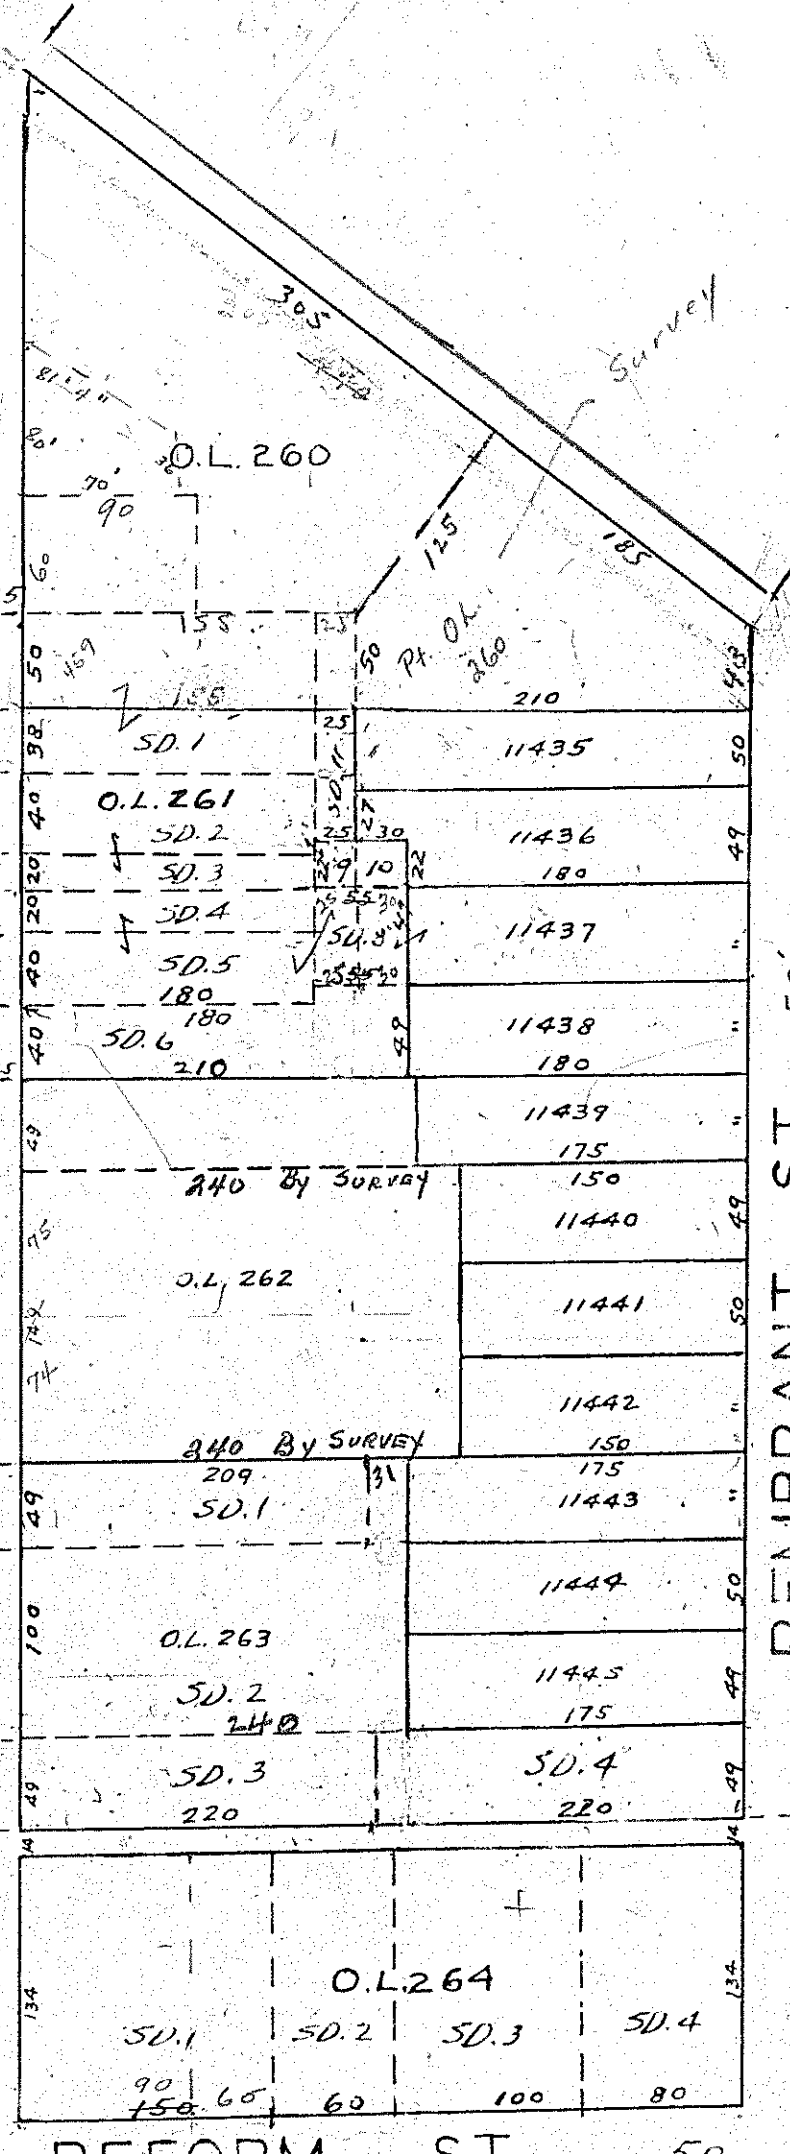 305
Survey
81'4"
80'
O.L. 260
70'
90
125
185
60
5
155
25
50
469
50
Pt. O.L.
260
43
155
210
38
SD.1
25
SD.11
11435
50
40
O.L. 261
SD.2
27
25 30
11436
49
20
SD.3
22
9 10
22
180
20
SD.4
25 55 30
SD.8
11437
"
40
SD.5
180
25 55 30
40
180
SD.6
49
11438
"
210
180
49
11439
"
175
240 By SURVEY
150
75
11440
49
O.L. 262
149
11441
50
74
11442
"
240 By SURVEY
150
209
31
175
49
SD.1
11443
"
11444
50
100
O.L. 263
SD.2
11445
49
240
175
49
SD.3
SD.4
49
220
220
14
14
134
O.L. 264
134
SD.1
SD.2
SD.3
SD.4
90
150
60
60
100
80
REMBRANT ST.
50'
REFORM ST.
50